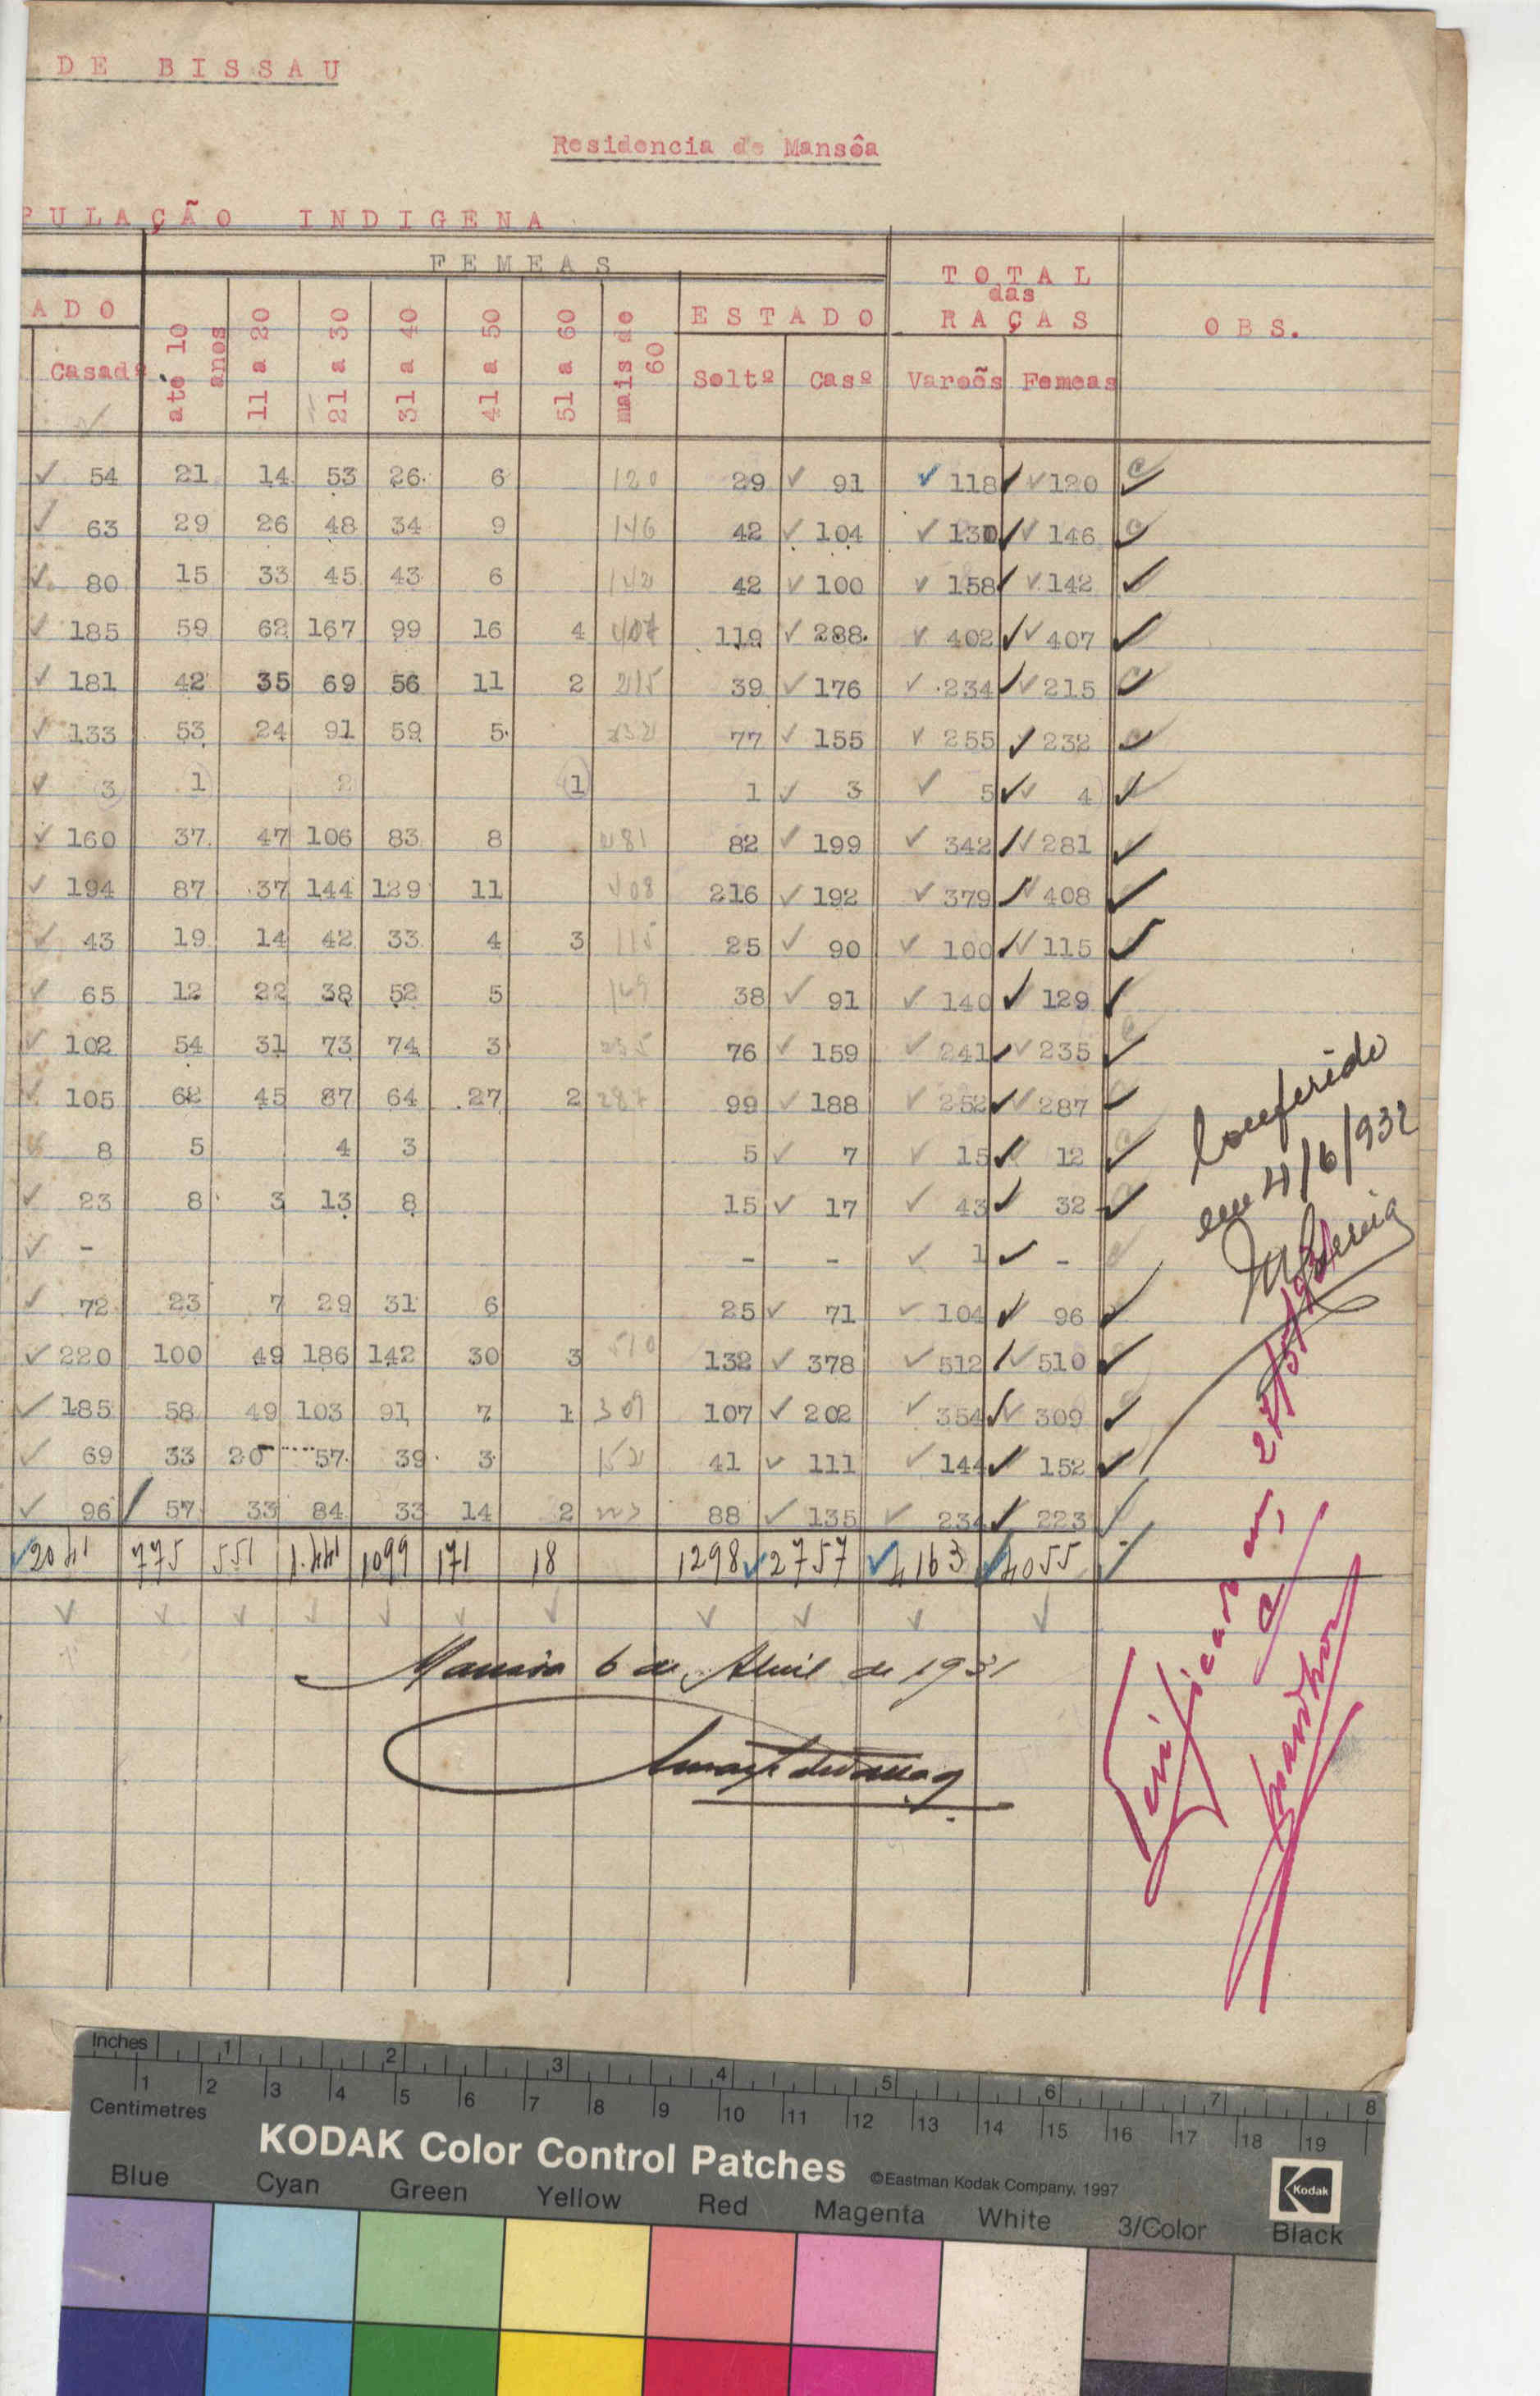 DE BISSAU
Residencia de Mansôa
PULAÇÃO INDIGENA
FEMEAS
TOTAL
das
RAÇAS
OBS.
ADO
ESTADO
Casadº
até 10 anos
11 a 20
21 a 30
31 a 40
41 a 50
51 a 60
mais de 60
Soltº Casº Varoẽs Femeas
54 21 14 53 26 6 120 29 91 118 120
63 29 26 48 34 9 146 42 104 130 146
80 15 33 45 43 6 142 42 100 158 142
185 59 62 167 99 16 4 407 119 288 402 407
181 42 35 69 56 11 2 215 39 176 234 215
133 53 24 91 59 5 232 77 155 255 232
3 1 2 1 1 3 5 4
160 37 47 106 83 8 281 82 199 342 281
194 87 37 144 129 11 408 216 192 379 408
43 19 14 42 33 4 3 115 25 90 100 115
65 12 22 38 52 5 38 91 140 129
102 54 31 73 74 3 235 76 159 241 235
105 62 45 87 64 27 2 287 99 188 252 287
8 5 4 3 5 7 15 12
23 8 3 13 8 15 17 43 32
- - - 1 -
72 23 7 29 31 6 25 71 104 96
220 100 49 186 142 30 3 510 132 378 512 510
185 58 49 103 91 7 1 309 107 202 354 309
69 33 20 57 39 3 152 41 111 144 152
96 57 33 84 33 14 2 223 88 135 234 223
2041 775 551 1.441 1099 171 18 1298 2757 4163 4055
Mansôa 6 de Abril de 1931
Conferido
em 4/6/932
Inches 1 2 3 4 5 6 7 8
Centimetres 1 2 3 4 5 6 7 8 9 10 11 12 13 14 15 16 17 18 19
KODAK Color Control Patches
©Eastman Kodak Company, 1997
Kodak
Blue Cyan Green Yellow Red Magenta White 3/Color Black